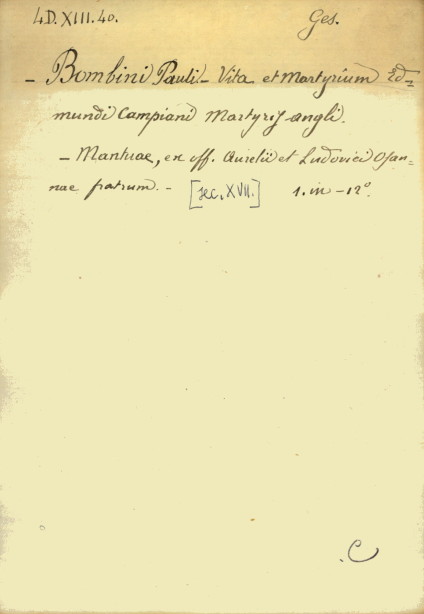 4.D.XIII.40. Ges.
- Bombini Pauli - Vita et Martyrium Ed=
mundi Campiani Martyris angli.
- Mantuae, ex off. Aurelii et Ludovici Osan=
nae fratrum. - [sec. XVII.] 1. in - 12°
C